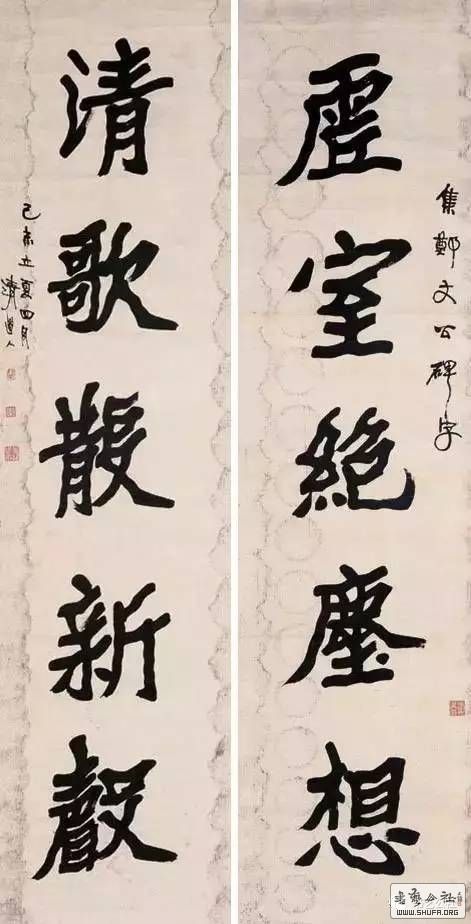 集鄭文公碑字
虛室絶塵想
清歌散新聲
己未立夏四月
清道人
书艺公社
WWW.SHUFA.ORG